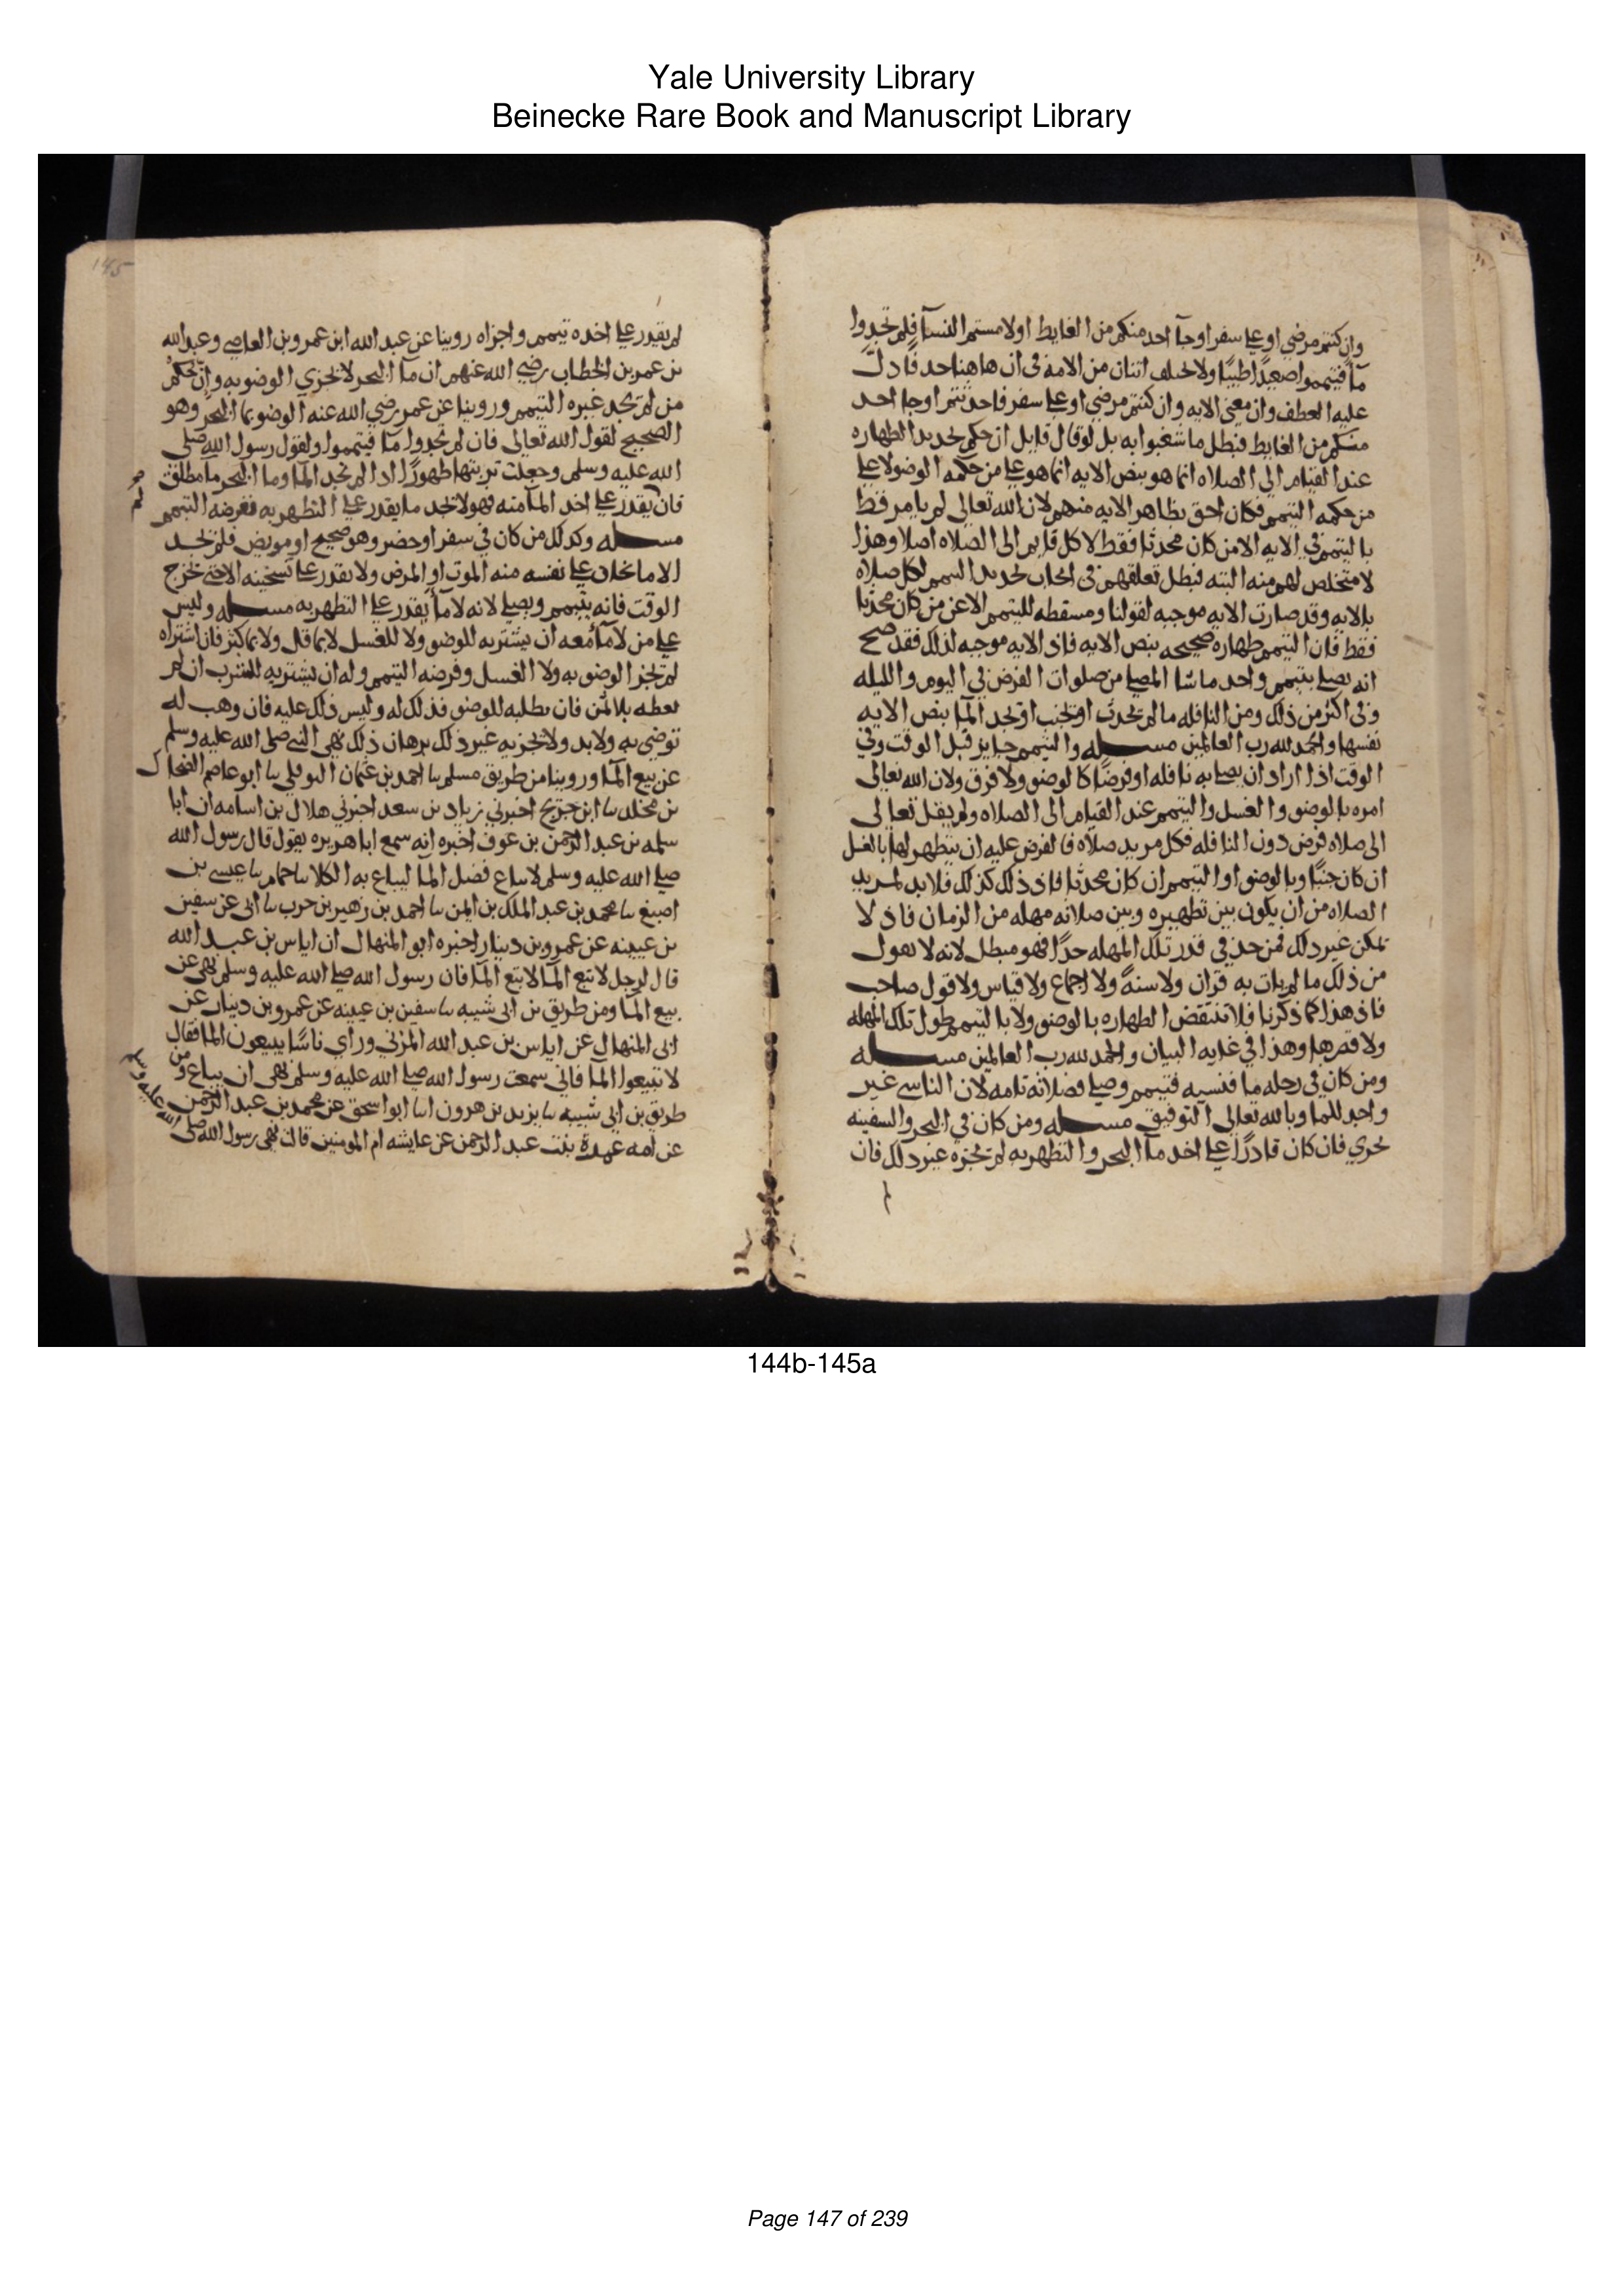 Yale University Library
Beinecke Rare Book and Manuscript Library
وان كنتم مرضي او علي سفر او جآ احد منكم من الغايط او لامستم النسآ فلم تجدوا
مآ فتيمموا صعيدًا طيبًا ولا يختلف اثنان من الامه في ان هاهنا حذفا دل
عليه العطف وان معني الايه وان كنتم مرضي او علي سفر فاحدثتم او جا احد
منكم من الغايط فبطل ما شغبوا به بل لو قال قايل ان حكم تجديد الطهاره
عند القيام الي الصلاه انما هو بنص الايه انما هو علي من حكمه الوضو لا علي
من حكمه التيمم فكان احق بظاهر الايه منهم لان الله تعالي لم يامر قط
بالتيمم في الايه الا من كان محدثا فقط لا كل قايم الي الصلاه اصلا وهذا
لا متخلص لهم منه البته فبطل تعلقهم في ايجاب تجديد التيمم لكل صلاه
بالايه وقد صارت الايه موجبه لقولنا ومسقطه للتيمم الا عن من كان محدثا
فقط فان التيمم طهاره صحيحه بنص الايه فاذ الايه موجبه لذلك فقد صح
انه يصلي بتيمم واحد ما شا المصلي من صلوات الفرض في اليوم والليله
وفي اكثر من ذلك ومن النافله ما لم يحدث او يجنب او يجد المآ بنص الايه
نفسها والحمد لله رب العالمين مسله والتيمم جايز قبل الوقت وفي
الوقت اذا اراد ان يصلي به نافله او فرضًا كالوضو ولا فرق ولان الله تعالي
امره بالوضو والغسل والتيمم عند القيام الي الصلاه ولم يقل تعالي
الي صلاه فرض دون النافله فكل مريد صلاه فالفرض عليه ان يتطهر لها بالغسل
ان كان جنبًا وبالوضو او التيمم ان كان محدثا فاذ ذلك كذلك فلا بد لمريد
الصلاه من ان يكون بين تطهيره وبين صلاته مهله من الزمان فاذ لا
يمكن غير ذلك فمن حد في قدر تلك المهله حدًا فهو مبطل لانه لا يقول
من ذلك ما لم يات به قران ولا سنةٌ ولا اجماع ولا قياس ولا قول صاحب
فاذ هذا كما ذكرنا فلا تنتقض الطهاره بالوضو ولا بالتيمم طول تلك المهله
ولا قصرها وهذا في غايه البيان والحمد لله رب العالمين مسله
ومن كان في رحله ما فنسيه فتيمم وصلي فصلاته تامه لان الناسي غير
واجد للما وبالله تعالي التوفيق مسله ومن كان في البحر والسفينه
تجري فان كان قادرًا علي اخذ مآ البحر والتطهر به لم يجزه غير ذلك فان
145
لم يقدر علي اخذه تيمم واجزاه روينا عن عبد الله ابن عمرو بن العاصي وعبد الله
بن عمر بن الخطاب رضي الله عنهم ان مآ البحر لا يجزي الوضو به وان حكم
من لم يجد غيره التيمم وروينا عن عمر رضي الله عنه الوضو بما البحر وهو
الصحيح لقول الله تعالي فان لم تجدوا مآ فتيمموا ولقول رسول الله صلي
الله عليه وسلم وجعلت تربتها طهورًا اذا لم نجد المآ وما البحر ما مطلق
فان يقدر علي اخذ المآ منه فهو لا يجد ما يقدر علي التطهر به ففرضه التيمم
مسله وكذلك من كان في سفر او حضر وهو صحيح او مريض فلم يجد
الا ما يخاف علي نفسه منه الموت او المرض ولا يقدر علي تسخينه الا حتي يخرج
الوقت فانه يتيمم ويصلي لانه لا مآ يقدر علي التطهر به مسله وليس
علي من لا مآ معه ان يشتريه للوضو ولا للغسل لا بما قل ولا بما كثر فان اشتراه
لم يجز الوضو به ولا الغسل وفرضه التيمم وله ان يشتريه للشرب ان لم
يعطه بلا ثمن فان يطلبه للوضو فذلك له وليس ذلك عليه فان وهب له
توضي به ولا بد ولا يجزيه غير ذلك برهان ذلك نهي النبي صلي الله عليه وسلم
عن بيع المآ وروينا من طريق مسلم سا احمد بن عثمان النوفلي سا ابو عاصم الضحاك
بن مخلد سا ابن جريج اخبرني زياد بن سعد اخبرني هلال بن اسامه ان ابا
سلمه بن عبد الرحمن بن عوف اخبره انه سمع ابا هريره يقول قال رسول الله
صلي الله عليه وسلم لا يباع فضل المآ ليباع به الكلا سا حمام سا عيسي بن
اصبغ سا محمد بن عبد الملك بن ايمن سا احمد بن زهير بن حرب سا ابي عن سفين
بن عيينه عن عمرو بن دينار اخبره ابو المنهال ان اياس بن عبد الله
قال لرجل لا تبع المآ لا تبع المآ فان رسول الله صلي الله عليه وسلم نهي عن
بيع المآ ومن طريق بن ابي شيبه سا سفين بن عيينه عن عمرو بن دينار عن
ابي المنهال عن اياس بن عبد الله المزني وراي ناسًا يبيعون الما فقال
لا تبيعوا المآ فاني سمعت رسول الله صلي الله عليه وسلم نهي ان يباع ومن
طريق بن ابي شيبه سا يزيد بن هرون انا ابو اسحق عن محمد بن عبد الرحمن
عن امه عمرة بنت عبد الرحمن عن عايشه ام المومنين قالت نهي رسول الله صلي
الله عليه وسلم
144b-145a
Page 147 of 239